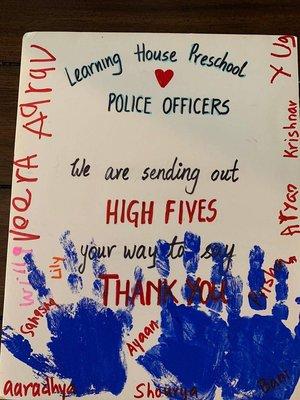 Learning House Preschool
POLICE OFFICERS
We are sending out
HIGH FIVES
your way to say
THANK YOU
Aarav
VeerA
Lily
Ayaan
aaradhya
Shourya
Aryan
Krishnav